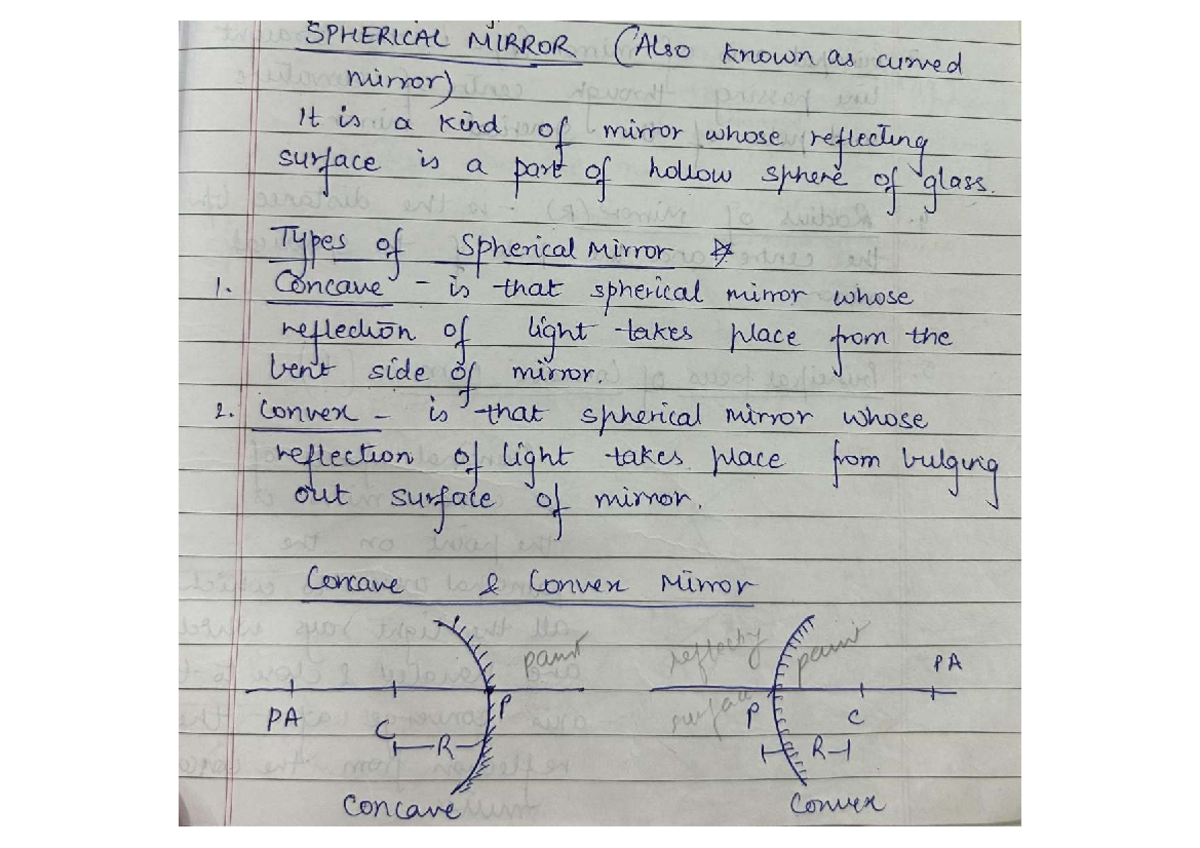 SPHERICAL MIRROR (Also known as curved
mirror)
It is a kind of mirror whose reflecting
surface is a part of hollow sphere of glass.
Types of Spherical Mirror ☆
1. Concave - is that spherical mirror whose
reflection of light takes place from the
bent side of mirror.
2. Convex - is that spherical mirror whose
reflection of light takes place from bulging
out surface of mirror.
Concave & Convex Mirror
paint
PA
C
P
R
Concave
reflecting
surface
paint
PA
P
C
R
Convex